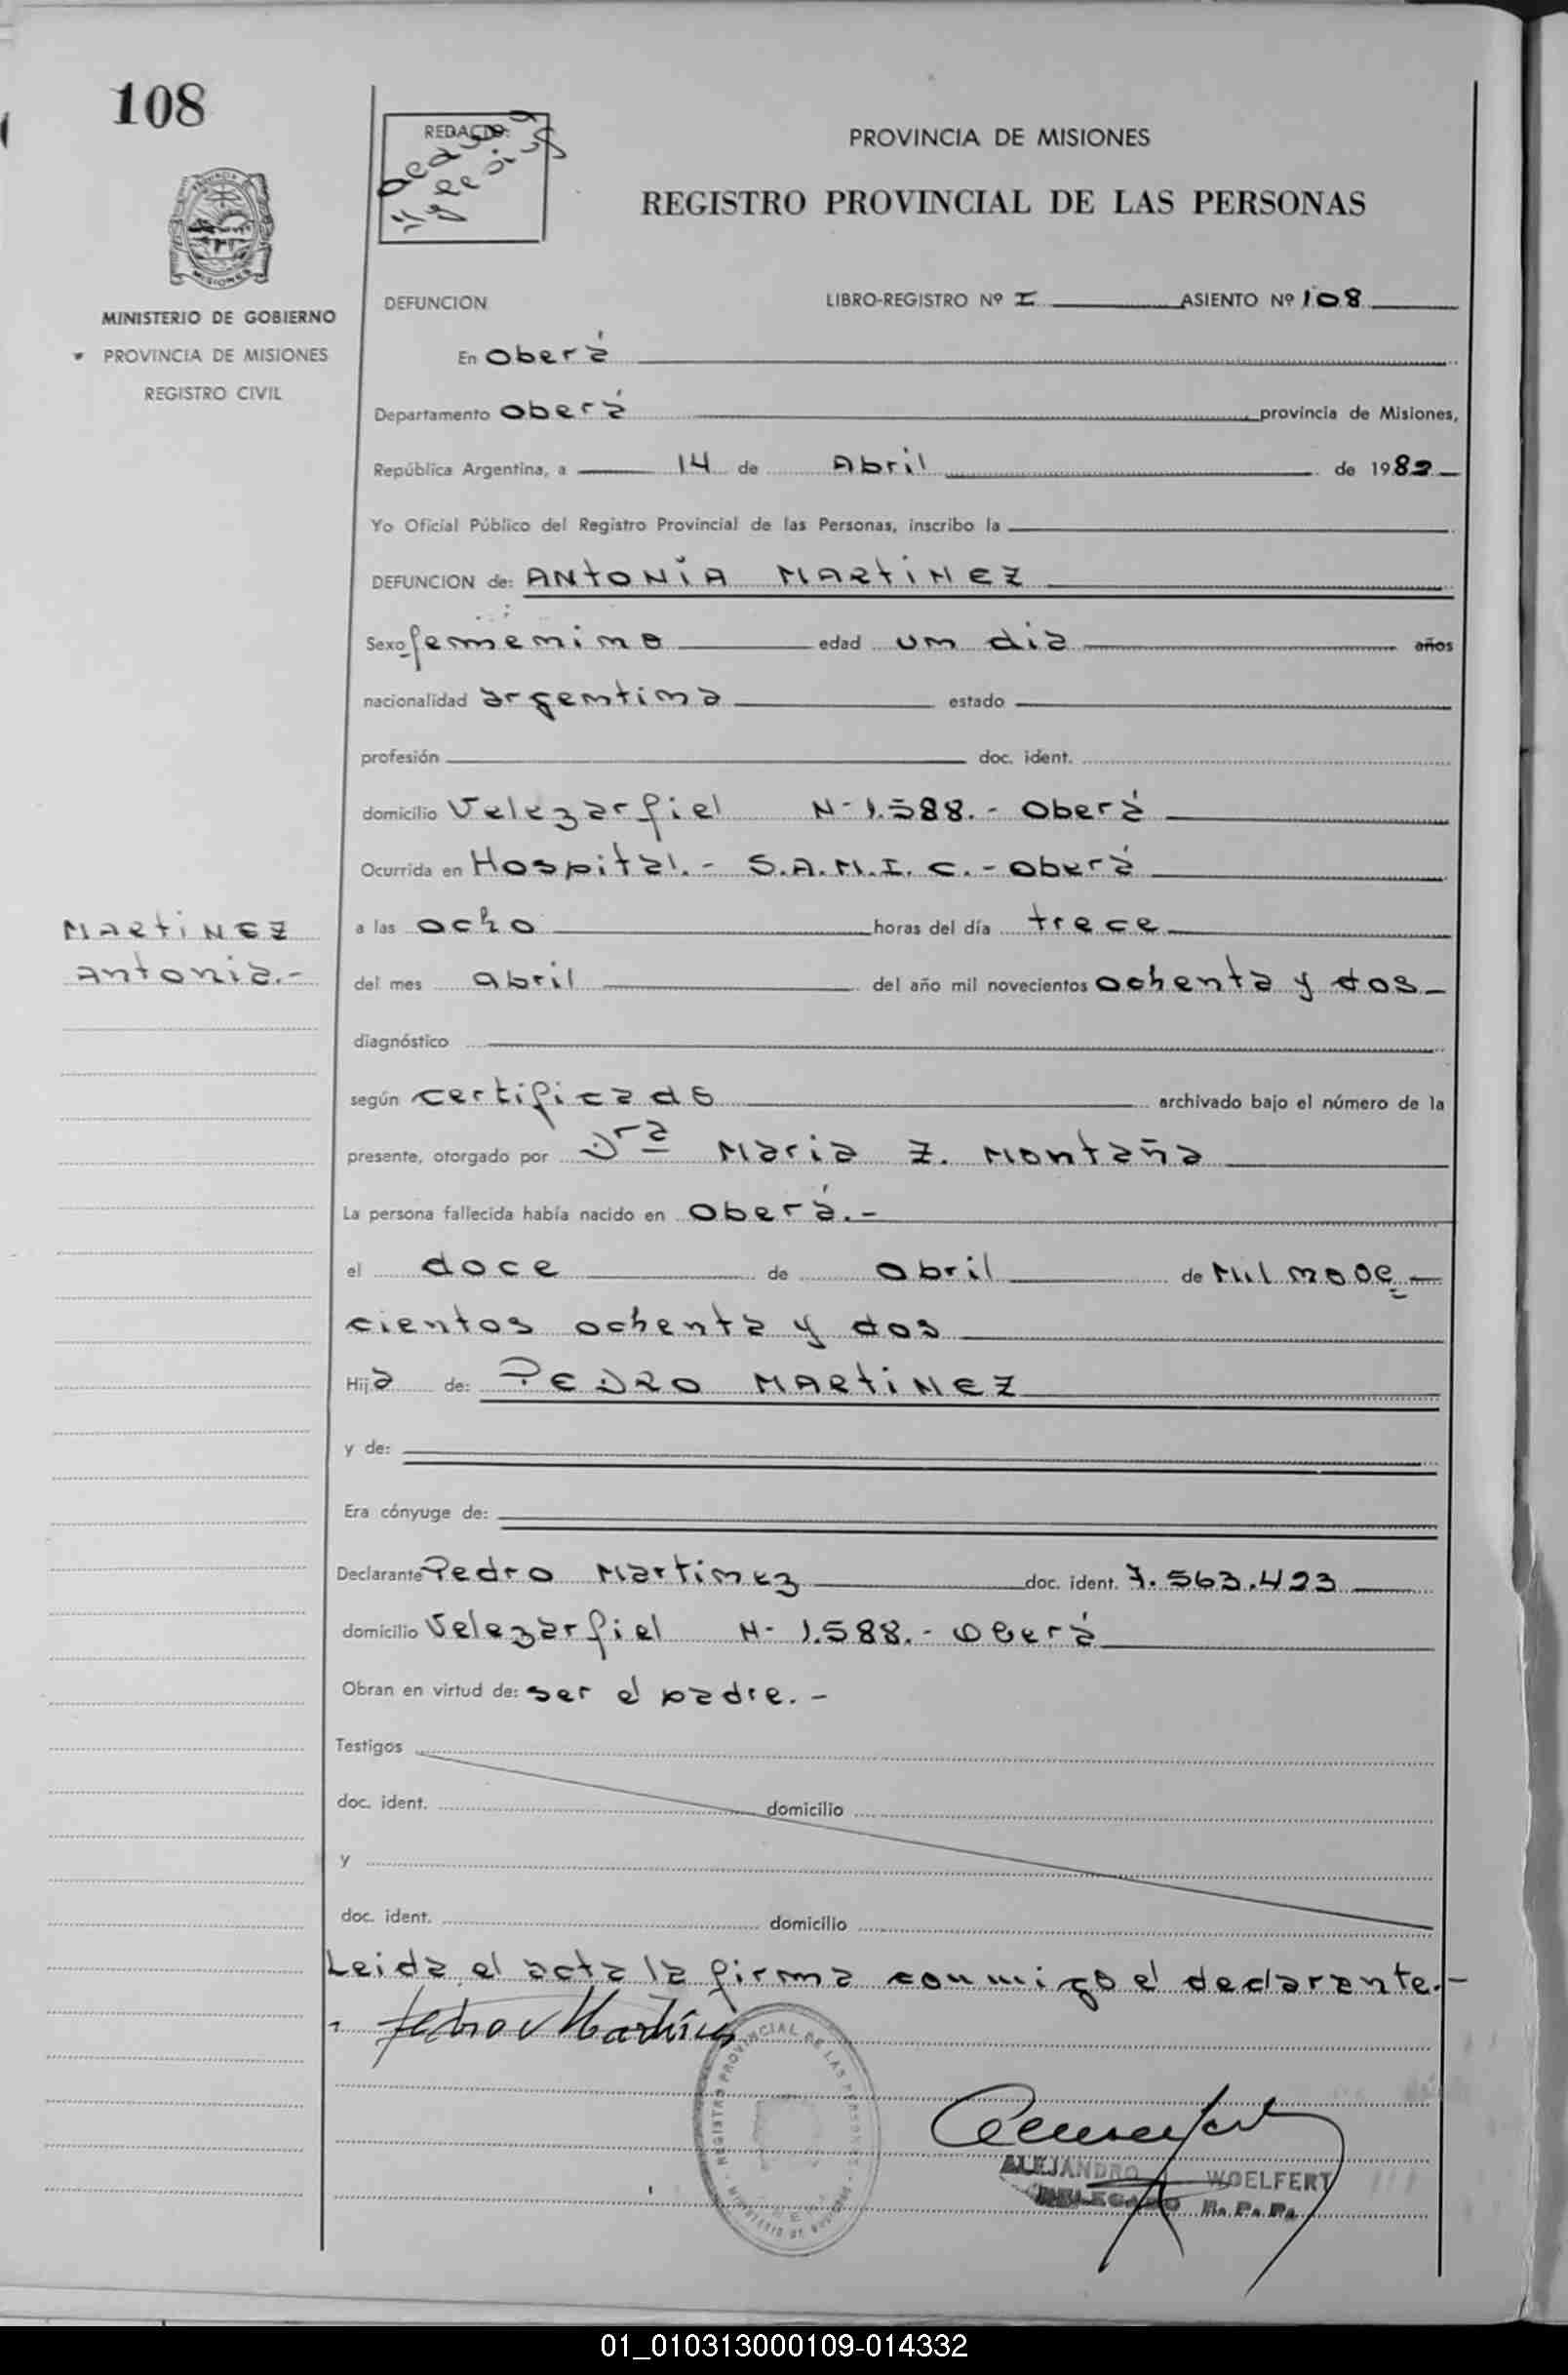 108
REDACTO:
PROVINCIA DE MISIONES
REGISTRO PROVINCIAL DE LAS PERSONAS
MISIONES
MINISTERIO DE GOBIERNO
PROVINCIA DE MISIONES
REGISTRO CIVIL
DEFUNCION LIBRO-REGISTRO Nº I ASIENTO Nº 108
En Oberá
Departamento Oberá provincia de Misiones,
República Argentina, a 14 de Abril de 1982
Yo Oficial Público del Registro Provincial de las Personas, inscribo la
DEFUNCION de: ANtONiA MARtiNEZ
Sexo femenino edad un dia años
nacionalidad argentina estado
profesión doc. ident.
domicilio Velezarfiel N- 1.588.- Oberá
Ocurrida en Hospital.- S.A.M.I.C.- Oberá
a las ocho horas del día trece
MARtiNEZ
Antonia.-
del mes abril del año mil novecientos ochenta y dos
diagnóstico
según certificado archivado bajo el número de la
presente, otorgado por Dra Maria Z. Montaña
La persona fallecida había nacido en Oberá.-
el doce de abril de Mil nove
cientos ochenta y dos
Hija de: PEDRO MARtiNEZ
y de:
Era cónyuge de:
Declarante Pedro Martinez doc. ident. 7.563.423
domicilio Velezarfiel N- 1.588.- Oberá
Obran en virtud de: ser el padre.-
Testigos
doc. ident. domicilio
y
doc. ident. domicilio
Leida el acta la firma conmigo el declarante.-
Pedro Martínez
REGISTRO PROVINCIAL DE LAS PERSONAS
ALEJANDRO WOELFERT
DELEGADO R. P. P.
01_010313000109-014332